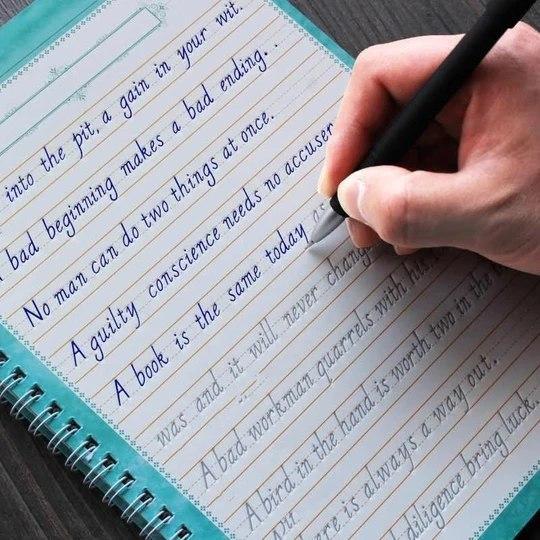 into the pit, a gain in your wit.
bad beginning makes a bad ending.
No man can do two things at once.
A guilty conscience needs no accuser
A book is the same today as
was and it will never chang
A bad workman quarrels with his
A bird in the hand is worth two in the
ere is always a way out.
diligence bring luck.